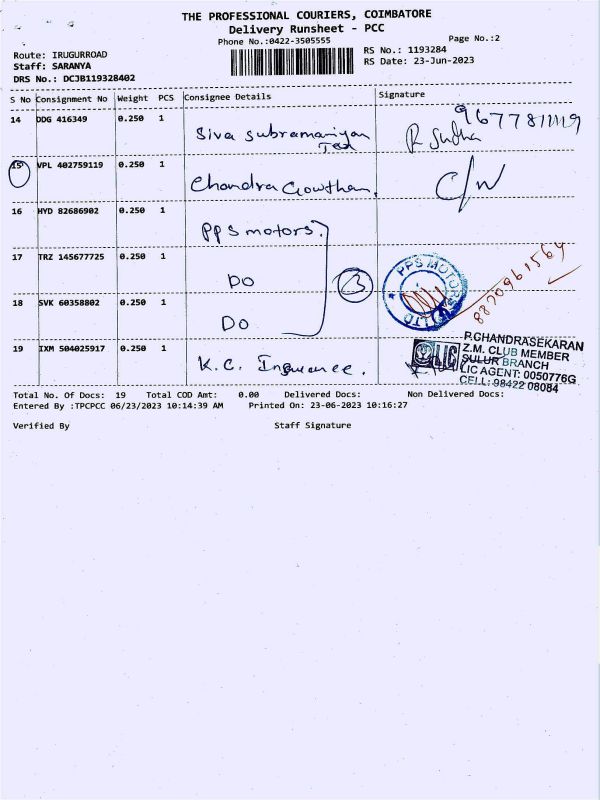 THE PROFESSIONAL COURIERS, COIMBATORE
Delivery Runsheet - PCC
Phone No.:0422-3505555
Page No.:2
Route: IRUGURROAD
Staff: SARANYA
DRS No.: DCJB119328402
RS No.: 1193284
RS Date: 23-Jun-2023
S No Consignment No Weight PCS Consignee Details Signature
14 DDG 416349 0.250 1 Siva Subramaniyan R Sudha 9677811119
Tex
15 VPL 402759119 0.250 1 Chandra Gowtham. C/W
16 HYD 82686902 0.250 1 PPS motors.
17 TRZ 145677725 0.250 1 DO
3
PPS MOTORS
LTD
8870961564
18 SVK 60358802 0.250 1 DO
19 IXM 504025917 0.250 1 K.C. Insurance.
LIC
P.CHANDRASEKARAN
Z.M. CLUB MEMBER
SULUR BRANCH
LIC AGENT: 0050776G
CELL: 98422 08084
Total No. Of Docs: 19 Total COD Amt: 0.00 Delivered Docs: Non Delivered Docs:
Entered By :TPCPCC 06/23/2023 10:14:39 AM Printed On: 23-06-2023 10:16:27
Verified By Staff Signature